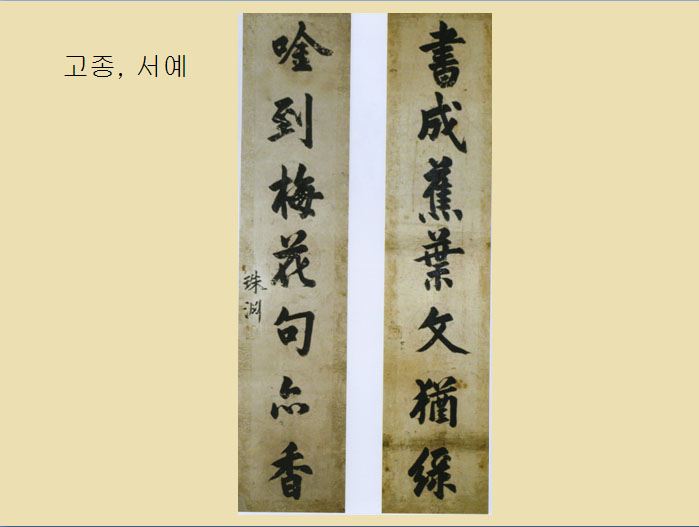 고종, 서예
書成蕉葉文猶綠
唫到梅花句亦香
珠淵